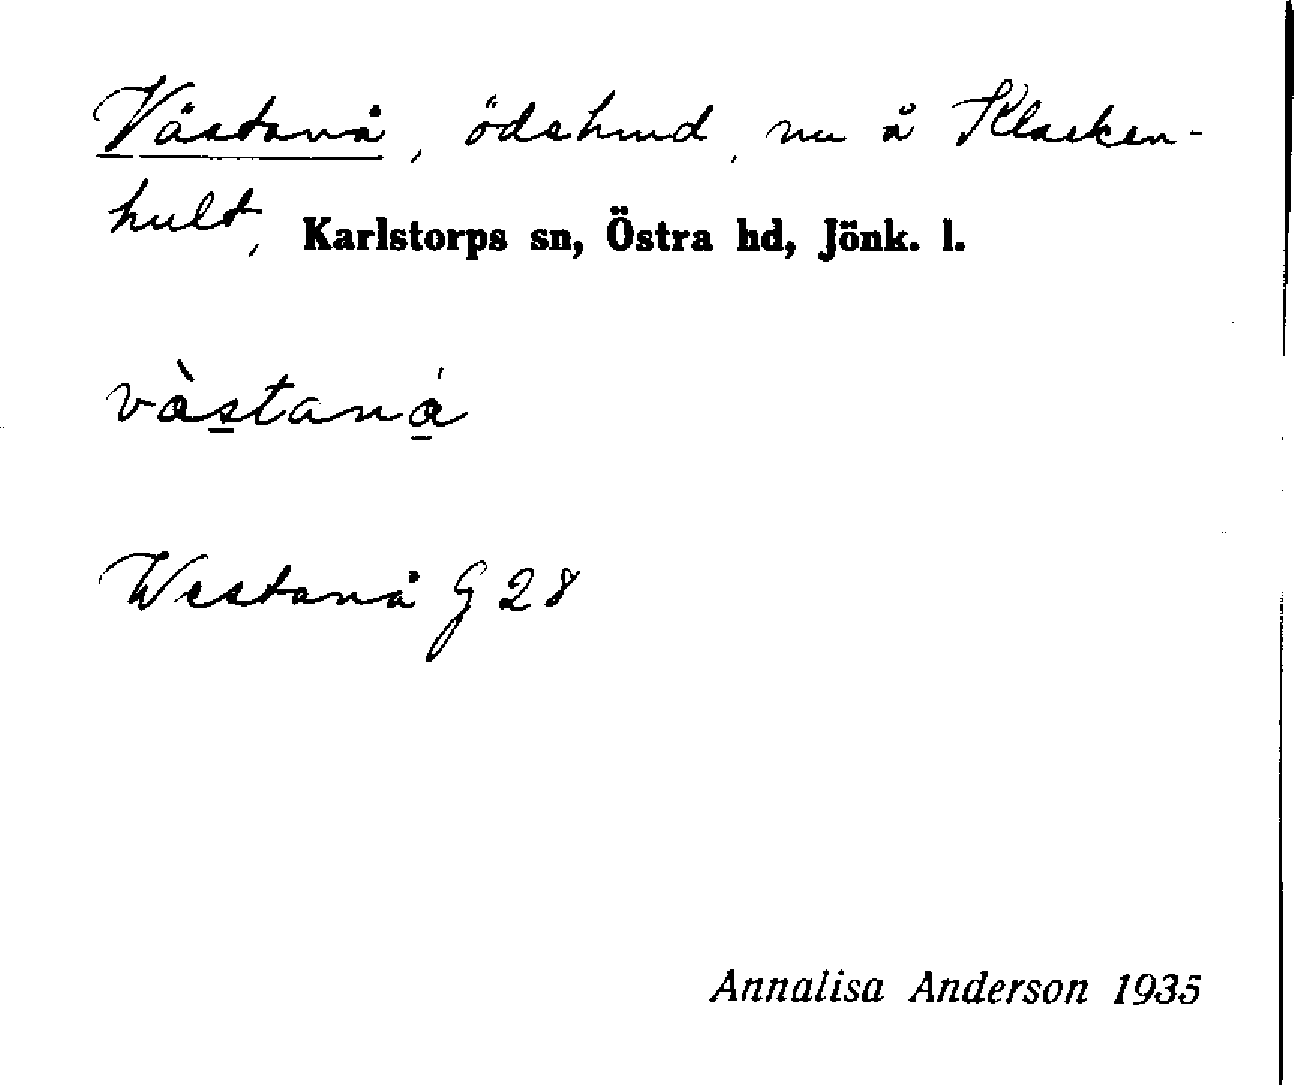 Västanå, ödehund, nu å Klacken-
hult, Karlstorps sn, Östra hd, Jönk. l.
vàstaná
Westanå G 28
Annalisa Anderson 1935